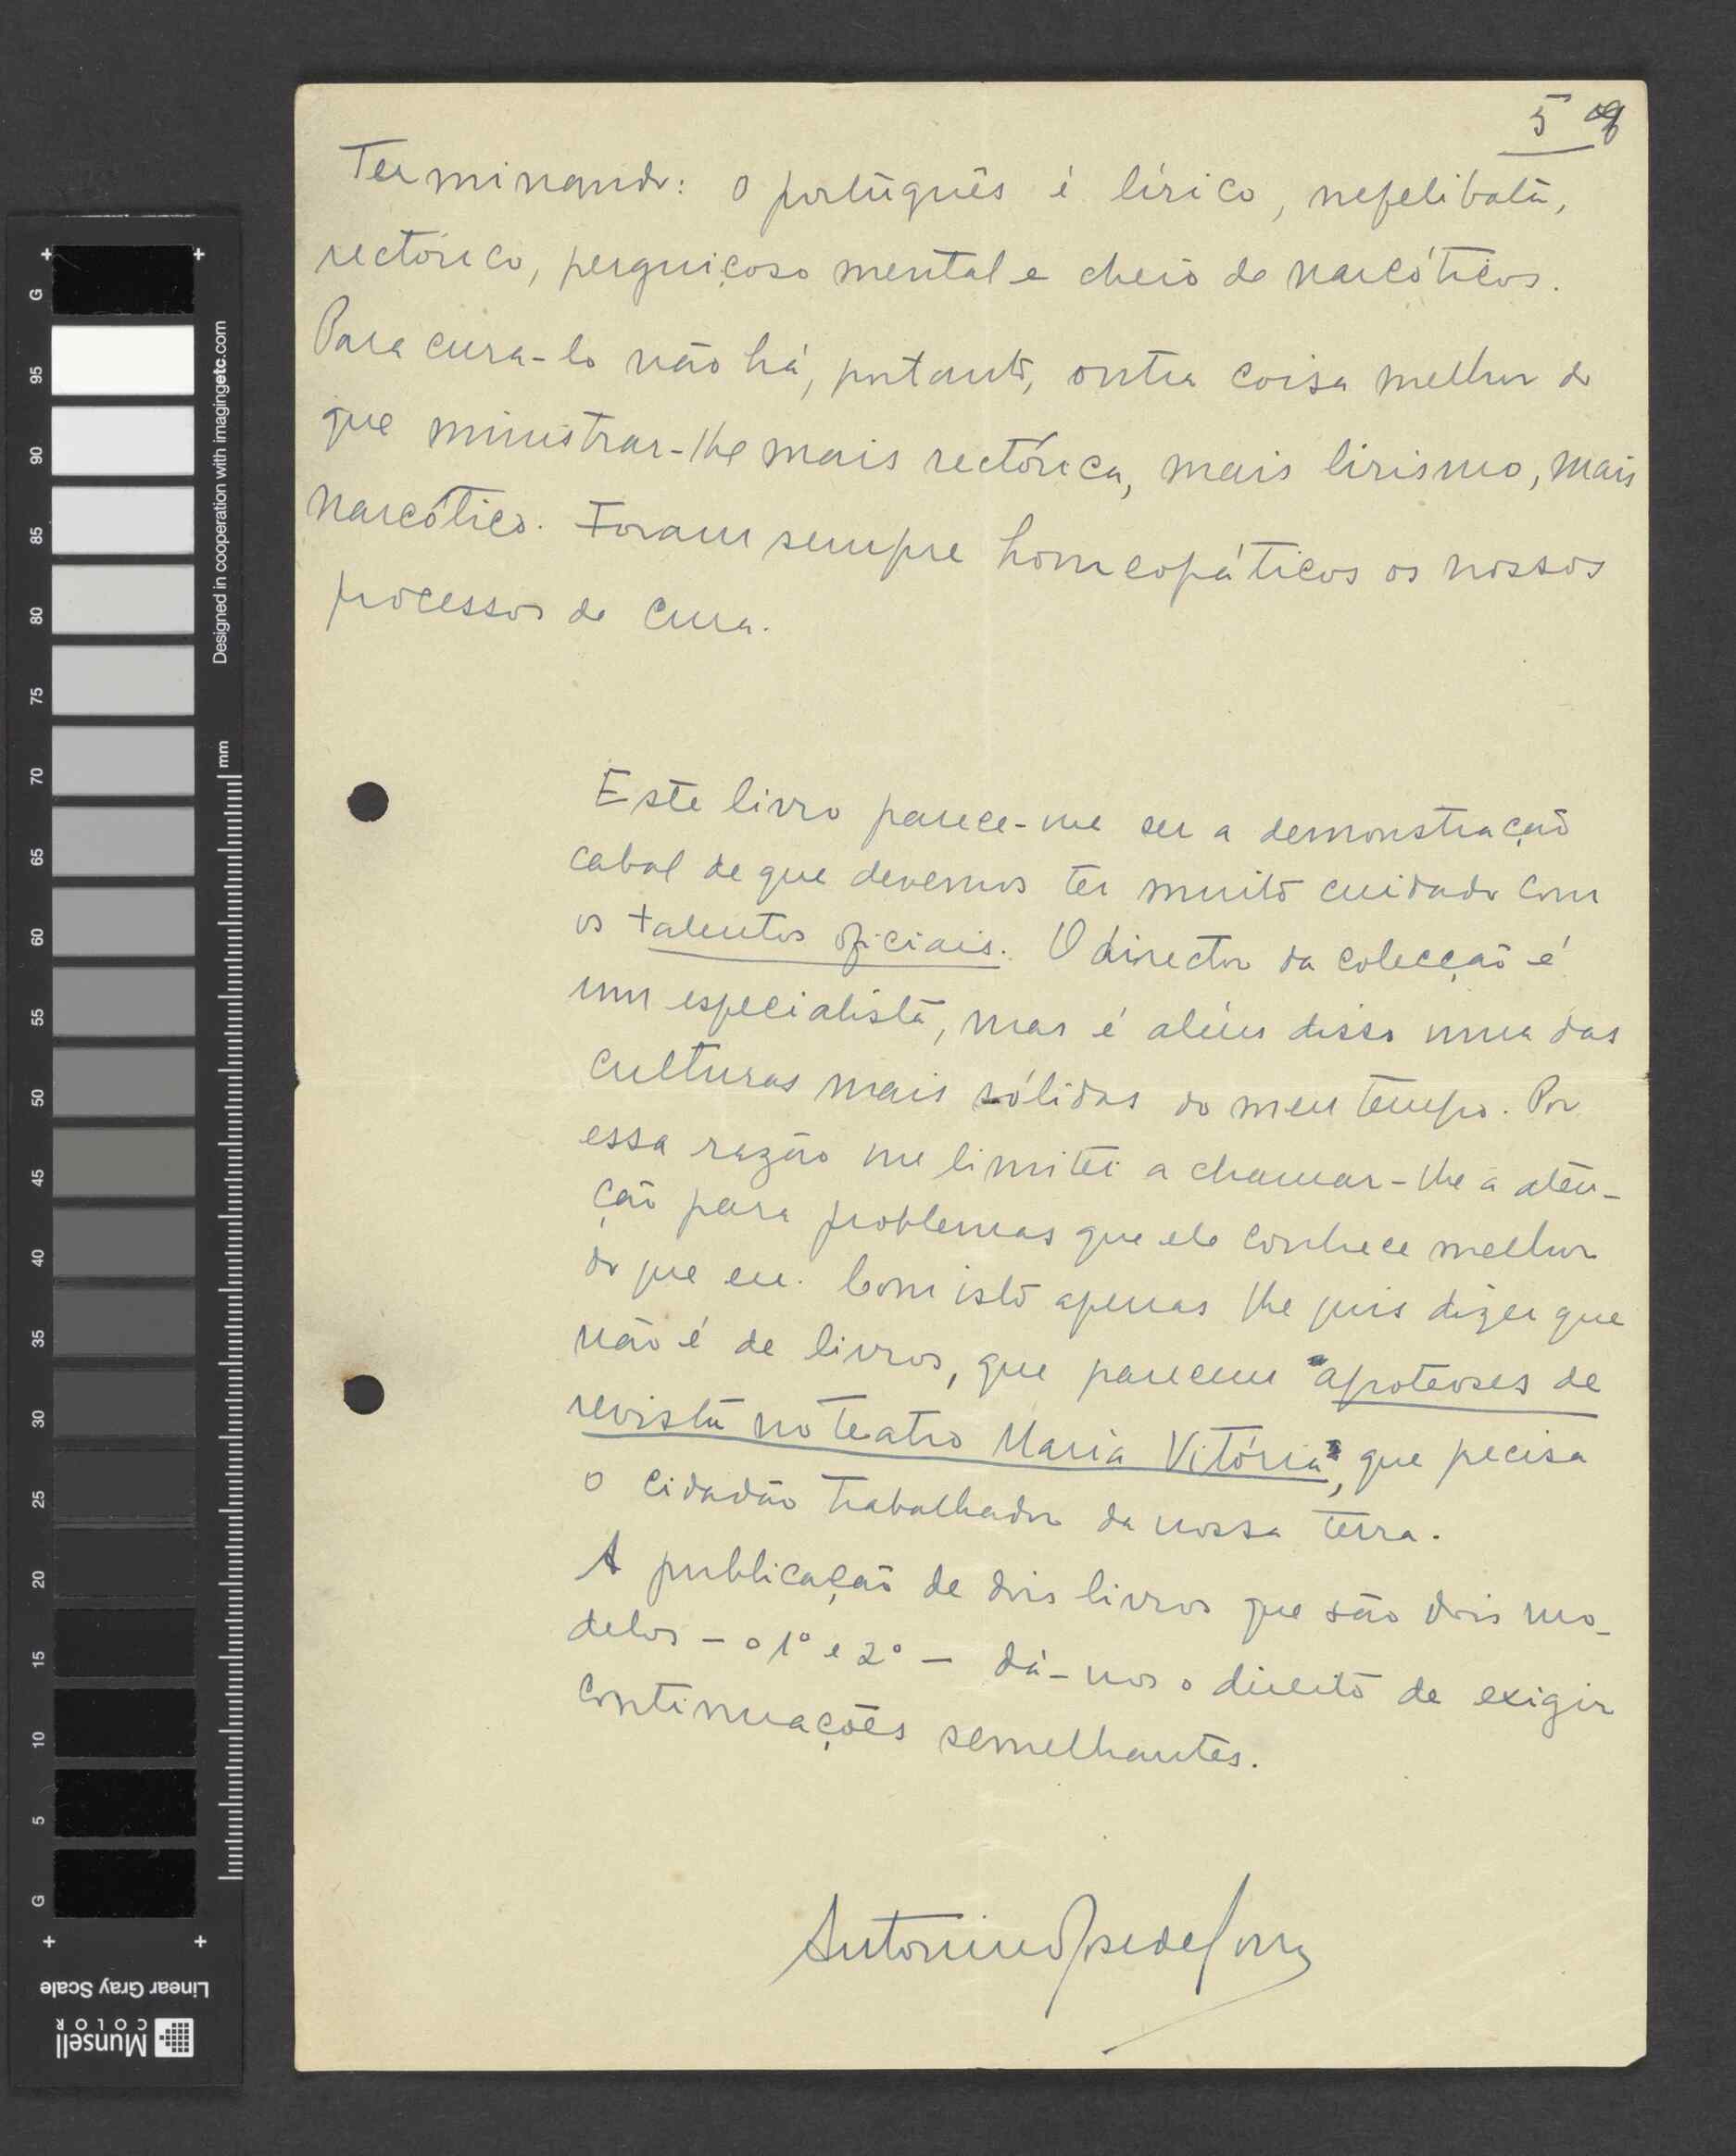 5
Terminando: o português é lírico, nefelibata,
rectórico, perguiçoso mental e cheio de narcóticos.
Para cura-lo não há, portanto, outra coisa melhor do
que ministrar-lhe mais rectórica, mais lirismo, mais
narcótico. Foram sempre homeopáticos os nossos
processos de cura.
Este livro parece-me ser a demonstração
cabal de que devemos ter muito cuidado com
os talentos oficiais. O director da colecção é
um especialista, mas é além disso uma das
culturas mais sólidas do meu tempo. Por
essa razão me limitei a chamar-lhe a aten-
ção para problemas que ele conhece melhor
do que eu. Com isto apenas lhe quis dizer que
não é de livros, que parecem "apoteoses de
revista no teatro Maria Vitória", que pecisa
o cidadão trabalhador da nossa terra.
A publicação de dois livros que são dois mo-
delos - o 1º e 2º - dá-nos o direito de exigir
continuações semelhantes.
G
95
90
85
80
75
70
65
60
55
50
45
40
35
30
25
20
15
10
5
G
Designed in cooperation with imagingetc.com
mm
Linear Gray Scale
Munsell
COLOR